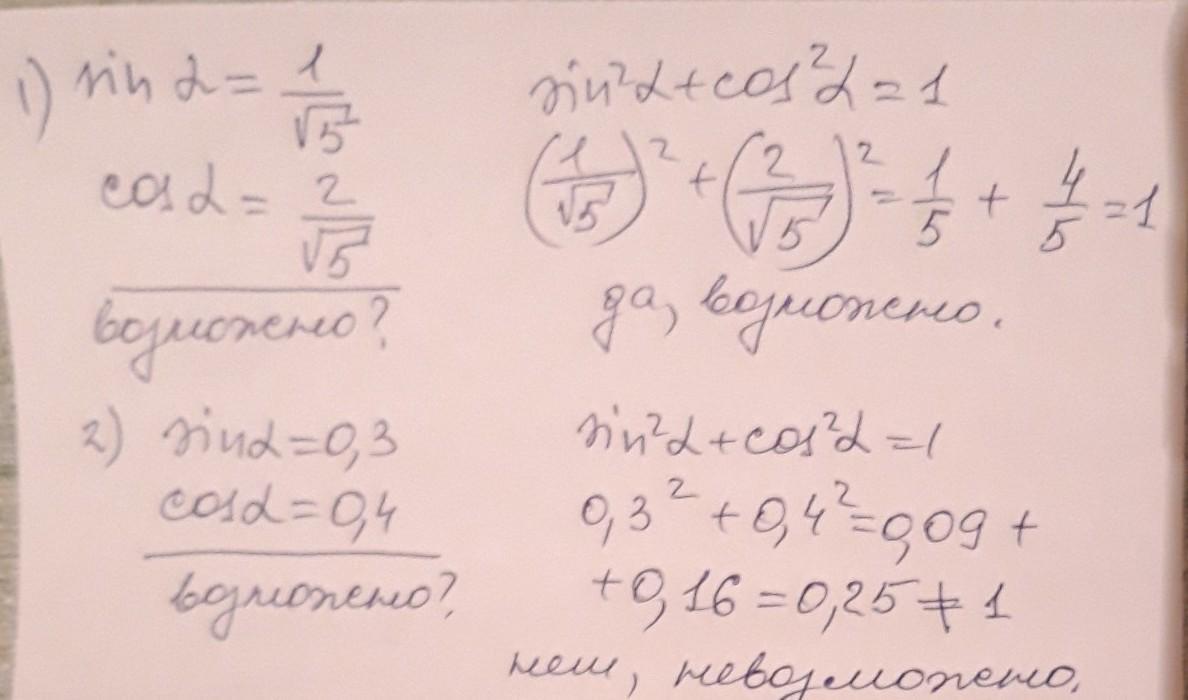 1) sin α = 1/√5
cos α = 2/√5
возможно?
sin²α + cos²α = 1
(1/√5)² + (2/√5)² = 1/5 + 4/5 = 1
да, возможно.
2) sin α = 0,3
cos α = 0,4
возможно?
sin²α + cos²α = 1
0,3² + 0,4² = 0,09 +
+ 0,16 = 0,25 ≠ 1
нет, невозможно.